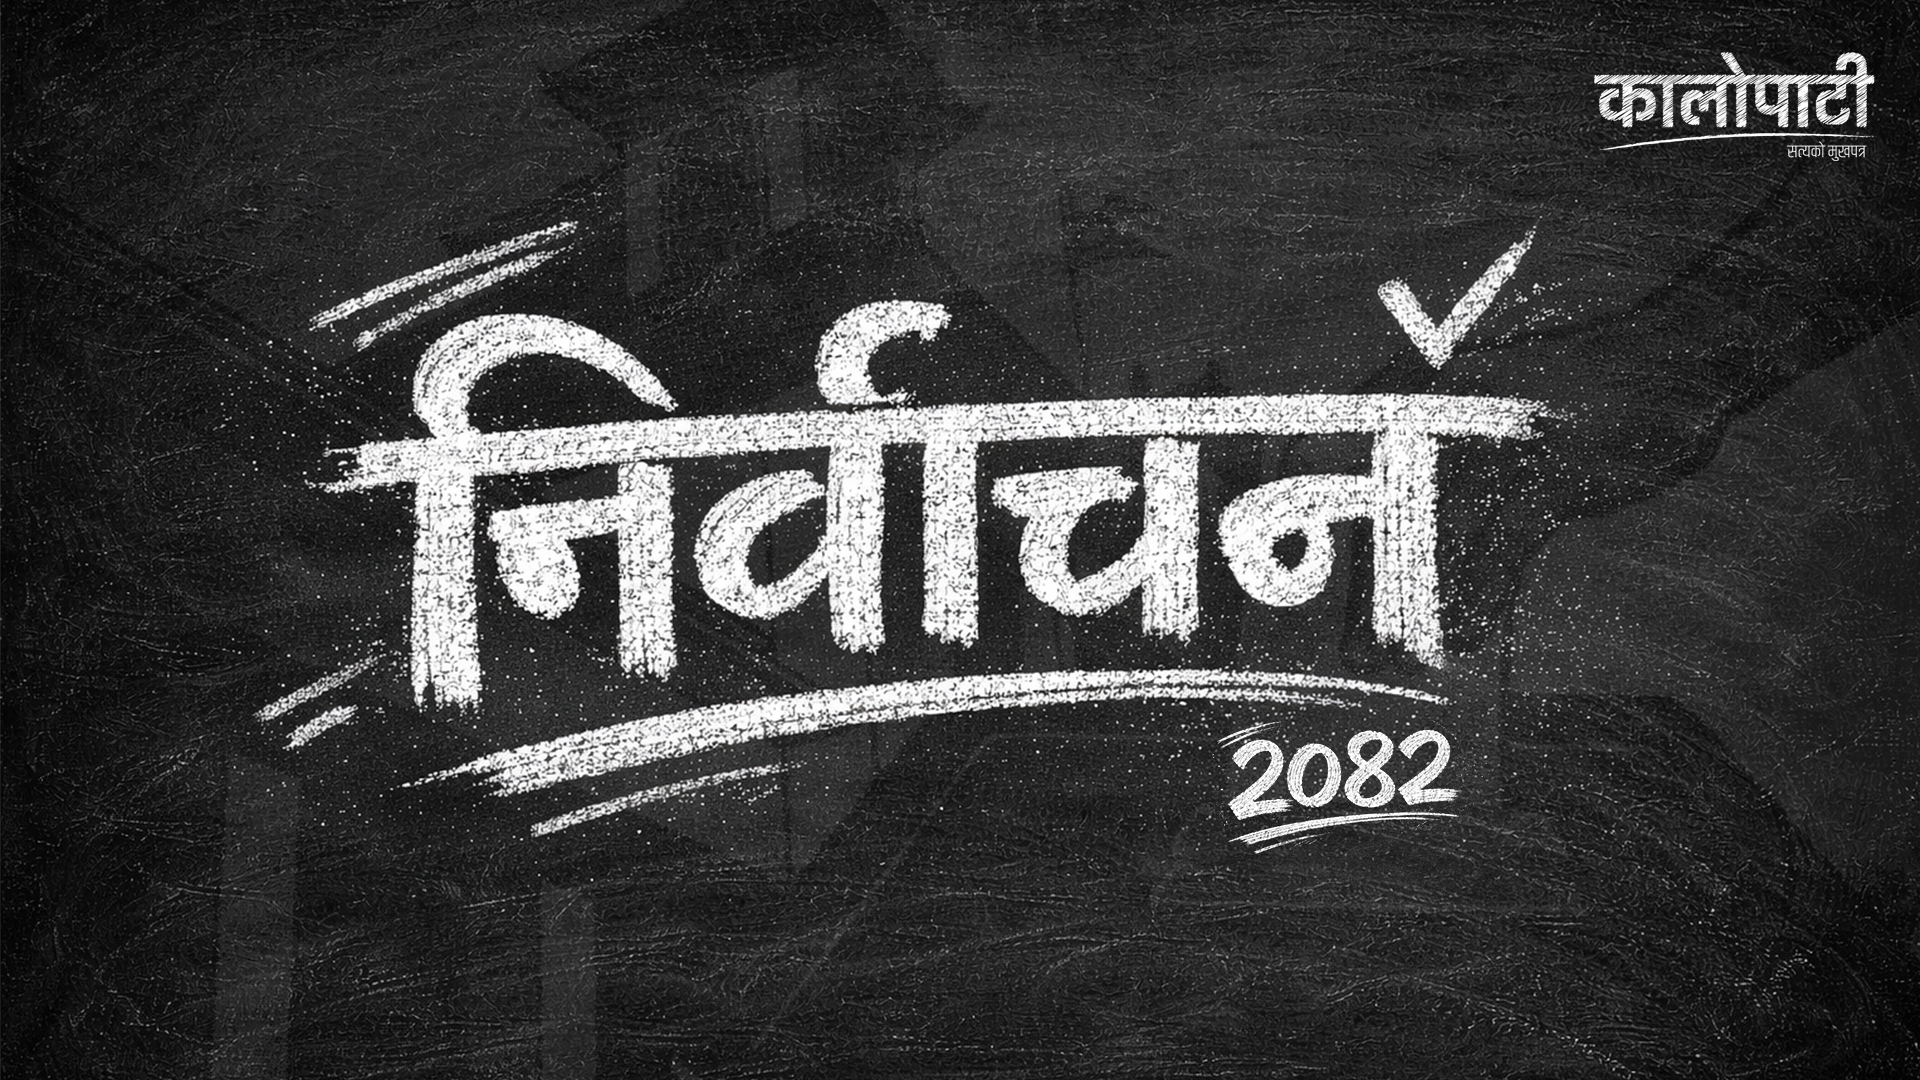 कालोपाटी
सत्यको मुखपत्र
निर्वाचन
2082